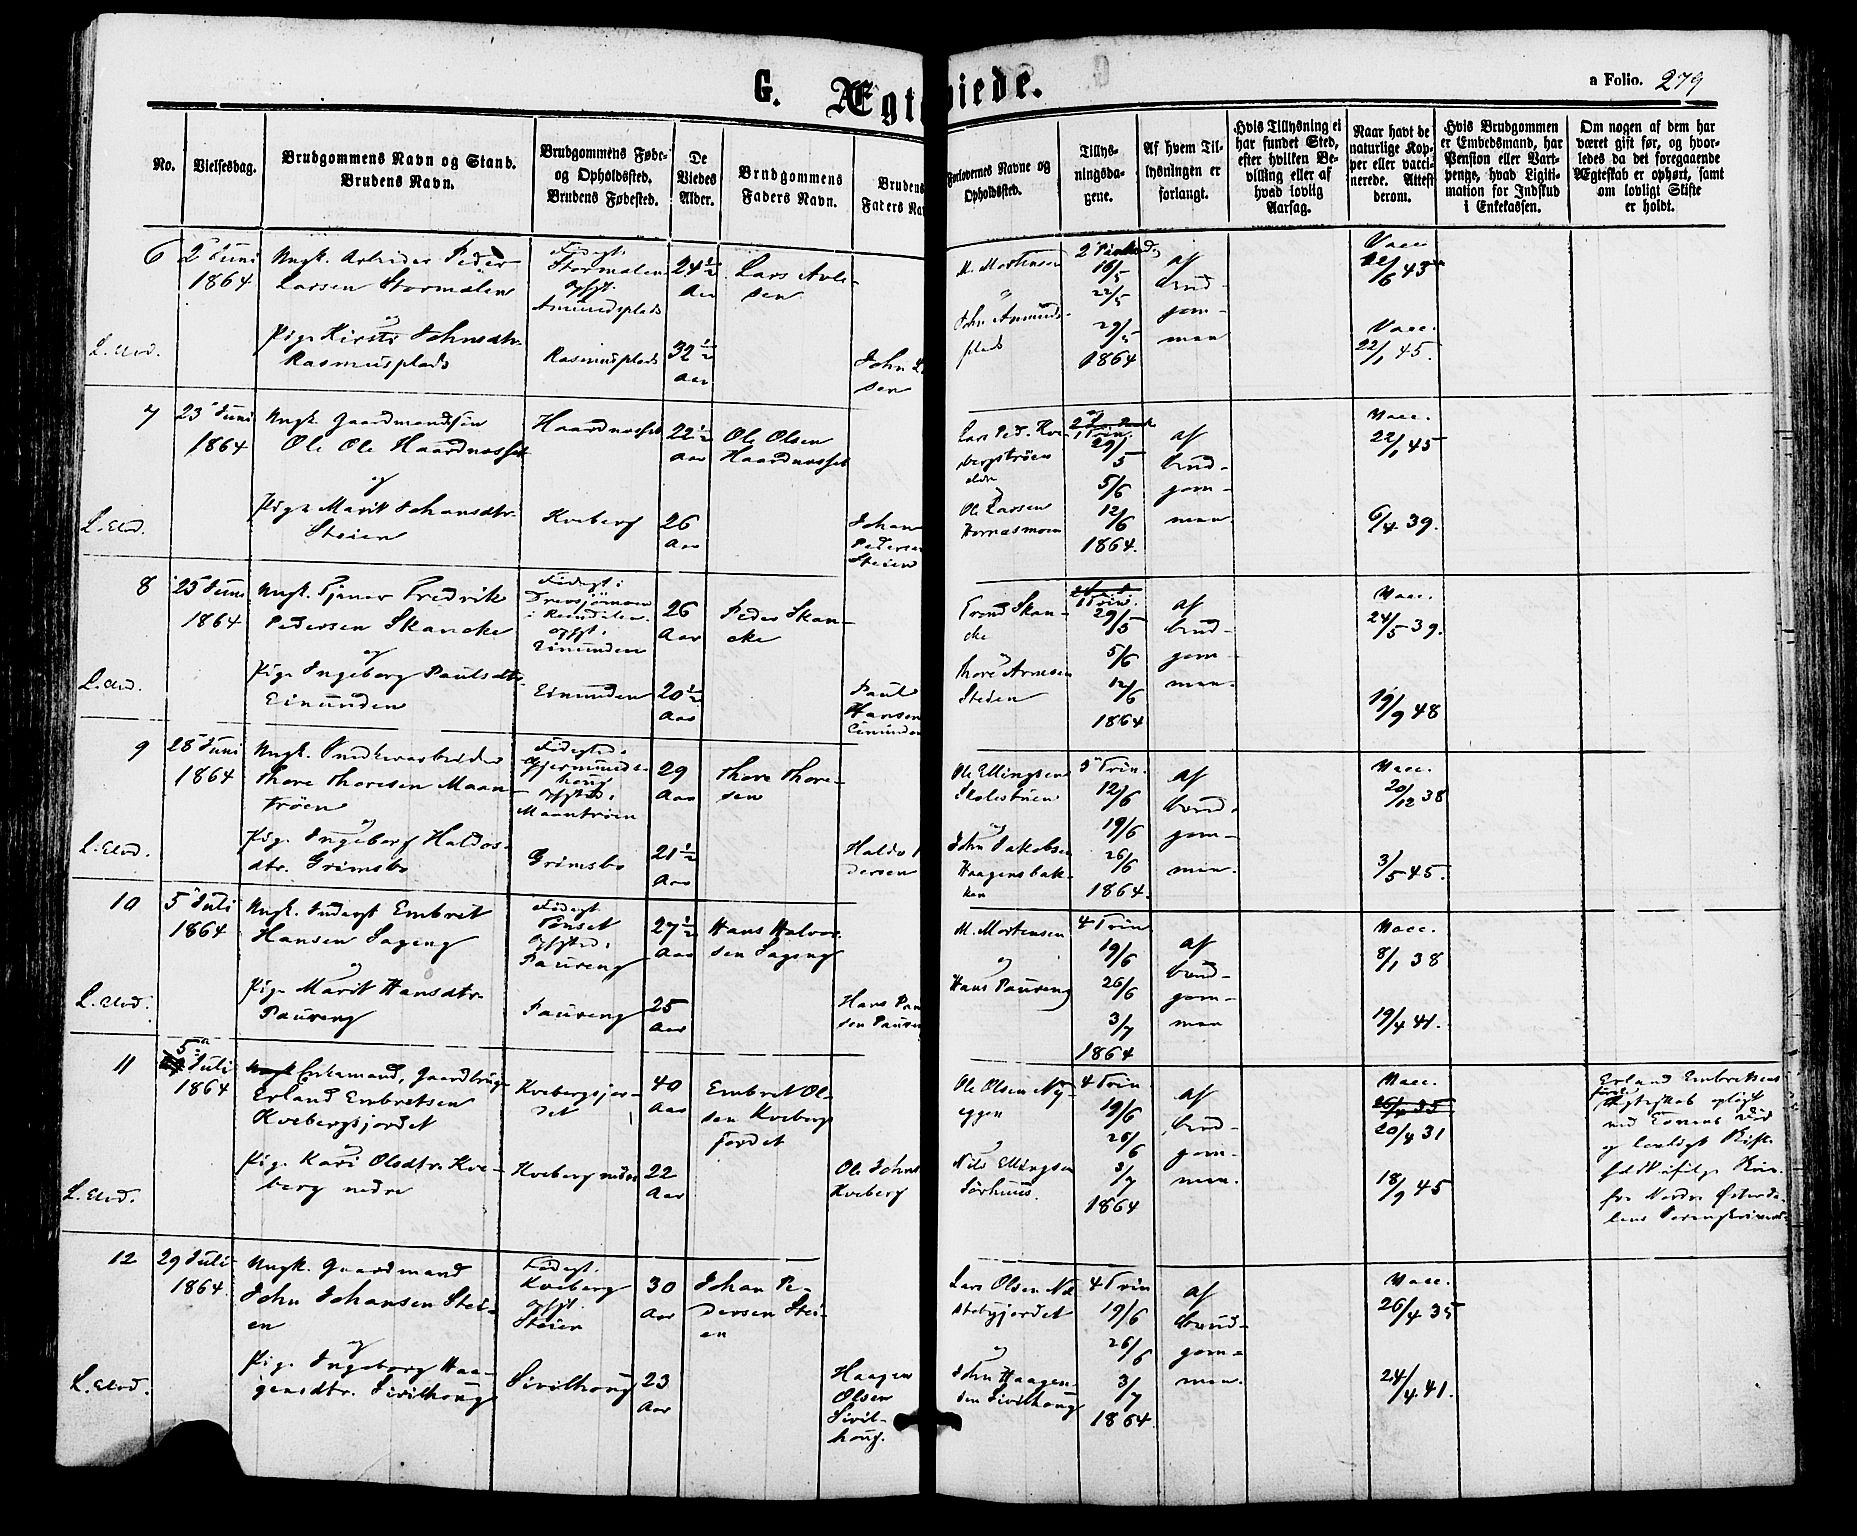 G. Ægteviede.
a Folio. 279
No.
Vielsesdag.
Brudgommens Navn og Stand.
Brudens Navn.
Brudgommens Føde-
og Opholdssted.
Brudens Fødested.
De
Viedes
Alder.
Brudgommens
Faders Navn.
Brudens
Faders Nav
Forlovernes Navne og
Opholdssted.
Tillys-
ningsda-
gene.
Af hvem Til-
lysningen er
forlangt.
Hvis Tillysning ei
har fundet Sted,
efter hvilken Be-
villing eller af
hvad lovlig
Aarsag.
Naar havt de
naturlige Kop-
per eller vacci-
nerede. Attest
derom.
Hvis Brudgommen
er Embedsmand, har
Pension eller Vart-
penge, hvad Ligiti-
mation for Indskud
i Enkekassen.
Om nogen af dem har
været gift før, og hvor-
ledes da det foregaaende
Ægteskab er ophørt, samt
om lovligt Skifte
er holdt.
6
2 Juni
1864
L. Elvd.
Ungk. Arbeider Peder
Larsen Stormolen
og
Pige Kirsti Johnsdtr.
Rasmusplads
Fødegt.
Stormolen
opft.
Amundsplads
Rasmusplads
24½
Aar
32½
Aar
Lars Avle-
sen
John
sen
M. Mortensen
og
John Amunds-
plads
16/5
22/5
29/5
1864
af
brud-
gom-
man
Vacc.
/6 43
Vacc.
22/1 45.
7
23 Juni
1864
L. Elvd.
Ungk. Gaardmandsøn
Ole Ole Haardnasset
og
Pige Marit Johansdtr.
Steien
Haardnasset
Kveberg
22½
Aar
26
Aar
Ole Olsen
Haardnasset
Johan
Pedersen
Steien
Lars Ped. Kve-
bergstrøen
og
Ole Larsen
Hornæsmoen
1 Trin.
29/5
5/6
12/6
1864.
af
brud-
gom-
man.
Vacc.
22/1 45
6/4 39.
8
25 Juni
1864
L. Elvd.
Ungk. Tjener Fredrik
Pedersen Skancke
og
Pige Ingeborg Paulsdtr.
Einunden
Fødegt:
opft.
Einunden
Einunden
26
Aar
20½
Aar
Peder Skan-
cke
Paul
Hansen
Einunden
Trond Skan-
cke
og
Thore Arnesen
Steien
1 Trin.
29/5
5/6
12/6
1864
af
brud-
gom-
man.
Vacc.
24/5 39.
19/9 48
9
28 Juni
1864
L. Elvd.
Thore Thoresen Moan-
trøen
og
Pige Ingeborg Haldos-
dtr. Grimsbo
Fødested.
Gjermunds-
houg
opft.
Moantrøen
Grimsbo
29
Aar
21½
Aar
Thore Thore-
sen
Haldo
dersen
Ole Ellingsen
og
John Jakobsen
Haagensbak-
ken
3 Trin.
12/6
19/6
26/6
1864.
af
brud-
gom-
man.
Vacc.
20/12 38
3/5 45.
10
5 Juli
1864
L. Elvd.
Ungk. Inderst Embret
Hansen Sageng
og
Pige Marit Hansdtr.
Paureng
Fødegt
Tønset
opfted:
Paureng
Paureng
27½
Aar
25
Aar
Hans Halvor-
sen Sageng
Hans Pau
sen Pauren
M. Mortensen
og
Hans Paureng
4 Trin
19/6
26/6
3/7
1864
af
brud-
gom-
man
Vacc.
8/1 38
19/4 41.
11
5
Juli
1864
L. Elvd.
Ungk Enkemand, Gaardbrug-
Erland Embretsen
Kvebergsjordet
og
Pige Kari Olsdtr. Kve-
berg nedre
Kvebergsjor-
det
Kveberg nedre
40
Aar
22
Aar
Embret Ol-
sen Kvebergs
jordet
Ole Johns
Kveberg
Ole Olsen Ny-
eggen
og
Nils Ellingsen
Sørhuus.
4 Trin.
19/6
26/6
3/7
1864
af
brud-
gom-
man.
Vacc.
26/4 35
20/4 31
18/9 45
Erland Embretsens
første
Ægteskab opløst
ved Konens Død
og lovligt Skifte
fra Nordre Østerda-
lens Sorenskriveri.
12
29 Juli
1864.
L. Elvd.
Ungk. Gaardmand
John Johansen Stei-
en
og
Pige Ingeborg Haa-
gensdtr. Sivilhoug
Fødegt.
Kveberg
opft.
Steien
Sivilhoug
30
Aar
23
Aar
Johan Pe-
dersen Stei-
en
Haagen
Olsen
Sivil-
houg.
Lars Olsen
og
John Haagen-
sen Sivilhoug
4 Trin
19/6
26/6
3/7
1864.
af
brud-
gom-
man.
Vacc.
26/4 35
24/4 41.